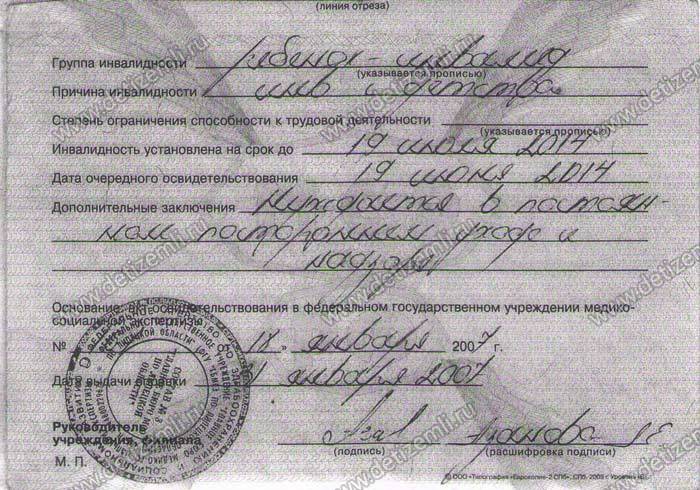 (линия отреза)
Группа инвалидности ребенок-инвалид
(указывается прописью)
Причина инвалидности инв с детства
Степень ограничения способности к трудовой деятельности
(указывается прописью)
Инвалидность установлена на срок до 19 июля 2014
Дата очередного освидетельствования 19 июня 2014
Дополнительные заключения Нуждается в постоян-
ном постороннем уходе и
надзоре
Основание: акт освидетельствования в федеральном государственном учреждении медико-
социальной экспертизы
№ 17 » января 2007 г.
Дата выдачи справки января 2007
Руководитель
учреждения, филиала
(подпись) (расшифровка подписи)
М. П.
© ООО «Типография
www.detizemli.ru